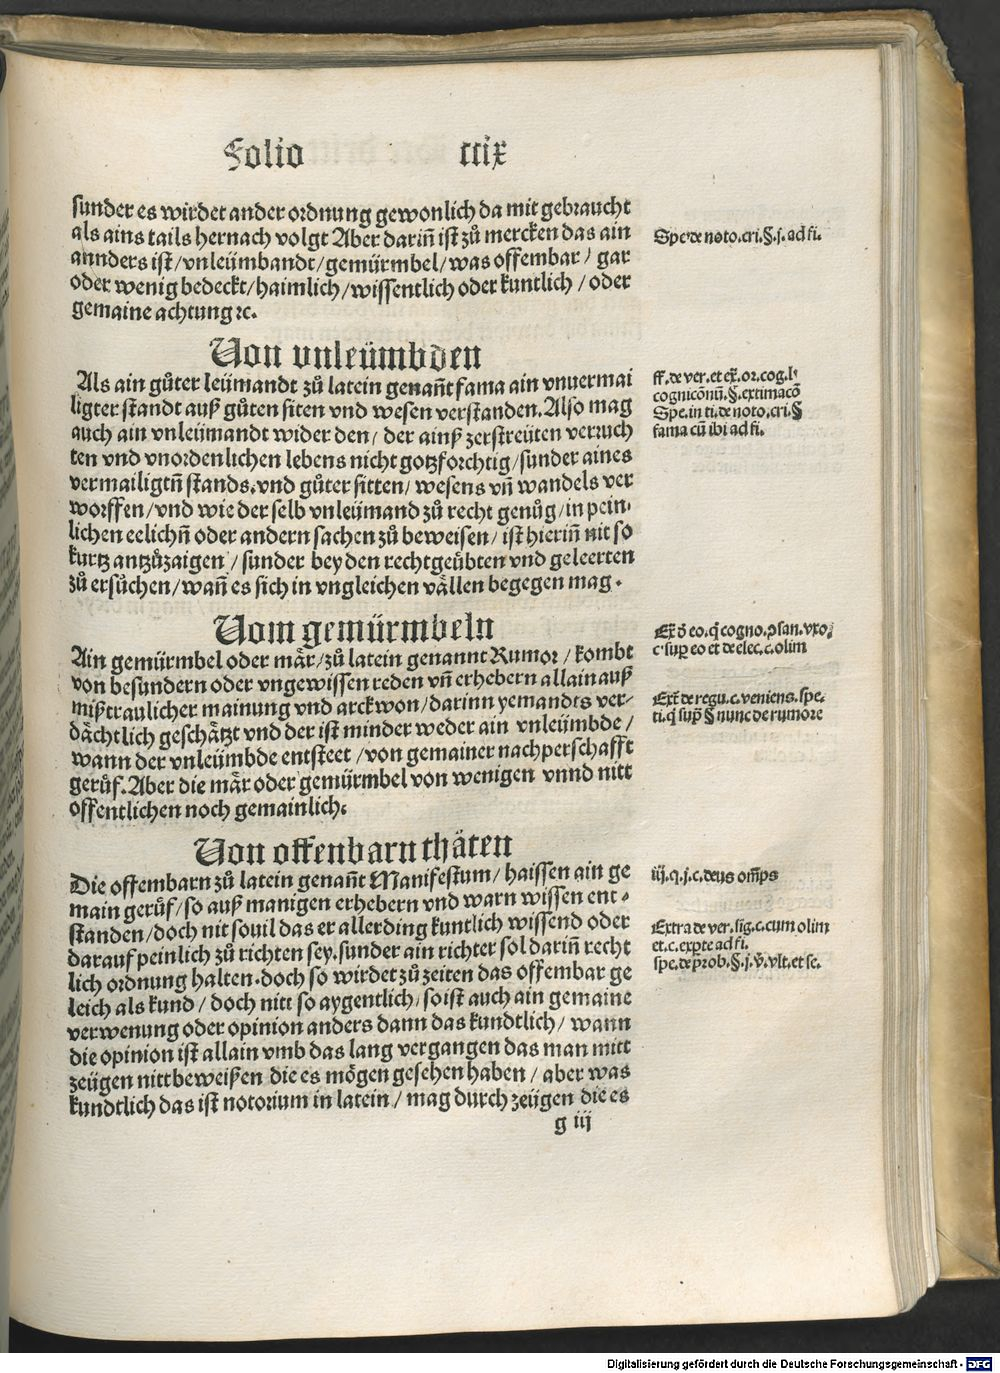 Folio ccix
sunder es wirdet ander ordnung gewonlich da mit gebraucht
als ains tails hernach volgt Aber darin̄ ist zů mercken das ain
annders ist/vnleümbandt/gemürmbel/was offembar/ gar
oder wenig bedeckt/haimlich/wissentlich oder kuntlich/oder
gemaine achtung ꝛc.
Spe. de noto. cri. §. j. ad fi.
Von vnleümbden
Als ain gůter leümandt zů latein genan̄t fama ain vnuermai
ligter standt auß gůten siten vnd wesen verstanden. Also mag
auch ain vnleümandt wider den/ der ainß zerstreüten verruch
ten vnd vnordenlichen lebens nicht gotzforchtig/sunder aines
vermailigtn̄ stands. vnd gůter sitten/ wesens vn̄ wandels ver
worffen/vnd wie der selb vnleümand zů recht genůg/in pein⸗
lichen eelichn̄ oder andern sachen zů beweisen/ ist hierin̄ nit so
kurtz antzůzaigen/sunder bey den rechtgeübten vnd geleerten
zů ersůchen/wan̄ es sich in vngleichen vällen begegen mag.
ff. de ver. et ex̄. or. cog. l'
cognicōnū. §. extimacō
Spe. in ti. de noto. cri. §
fama cū ibi ad fi.
Vom gemürmbeln
Ain gemürmbel oder mär/zů latein genannt Rumor/kombt
von besundern oder vngewissen reden vn̄ erhebern allain auß
mißtraulicher mainung vnd arckwon/darinn yemandts ver⸗
dächtlich geschätzt vnd der ist minder weder ain vnleümbde/
wann der vnleümbde entsteet/von gemainer nachperschafft
gerůf. Aber die mär oder gemürmbel von wenigen vnnd nitt
offentlichen noch gemainlich.
Ex̄ δ eo. q̄ cogno. ꝯsan. vxo.
c. sup̄ eo et de elec. c. olim
Ext̄ de regu. c. veniens. spe.
ti. q̄ sup̄ § nunc de rumore
Von offenbarn thäten
Die offembarn zů latein genan̄t Manifestum/haissen ain ge
main gerůf/so auß manigen erhebern vnd warn wissen ent⸗
standen/doch nit souil das er allerding kuntlich wissend oder
darauf peinlich zů richten sey. sunder ain richter sol darin̄ recht
lich ordnung halten. doch so wirdet zů zeiten das offembar ge
leich als kund/doch nitt so aygentlich/so ist auch ain gemaine
verwenung oder opinion anders dann das kundtlich/wann
die opinion ist allain vmb das lang vergangen das man mitt
zeügen nitt beweißen die es mögen gesehen haben/aber was
kundtlich das ist notorium in latein/mag durch zeügen die es
iij. q. j. c. deus om̄ps
Extra de ver. sig. c. cum olim
et. c. exp̄te ad fi.
spe. de p̄rob. §. j. v̄. vlt. et se.
g iij
Digitalisierung gefördert durch die Deutsche Forschungsgemeinschaft - DFG